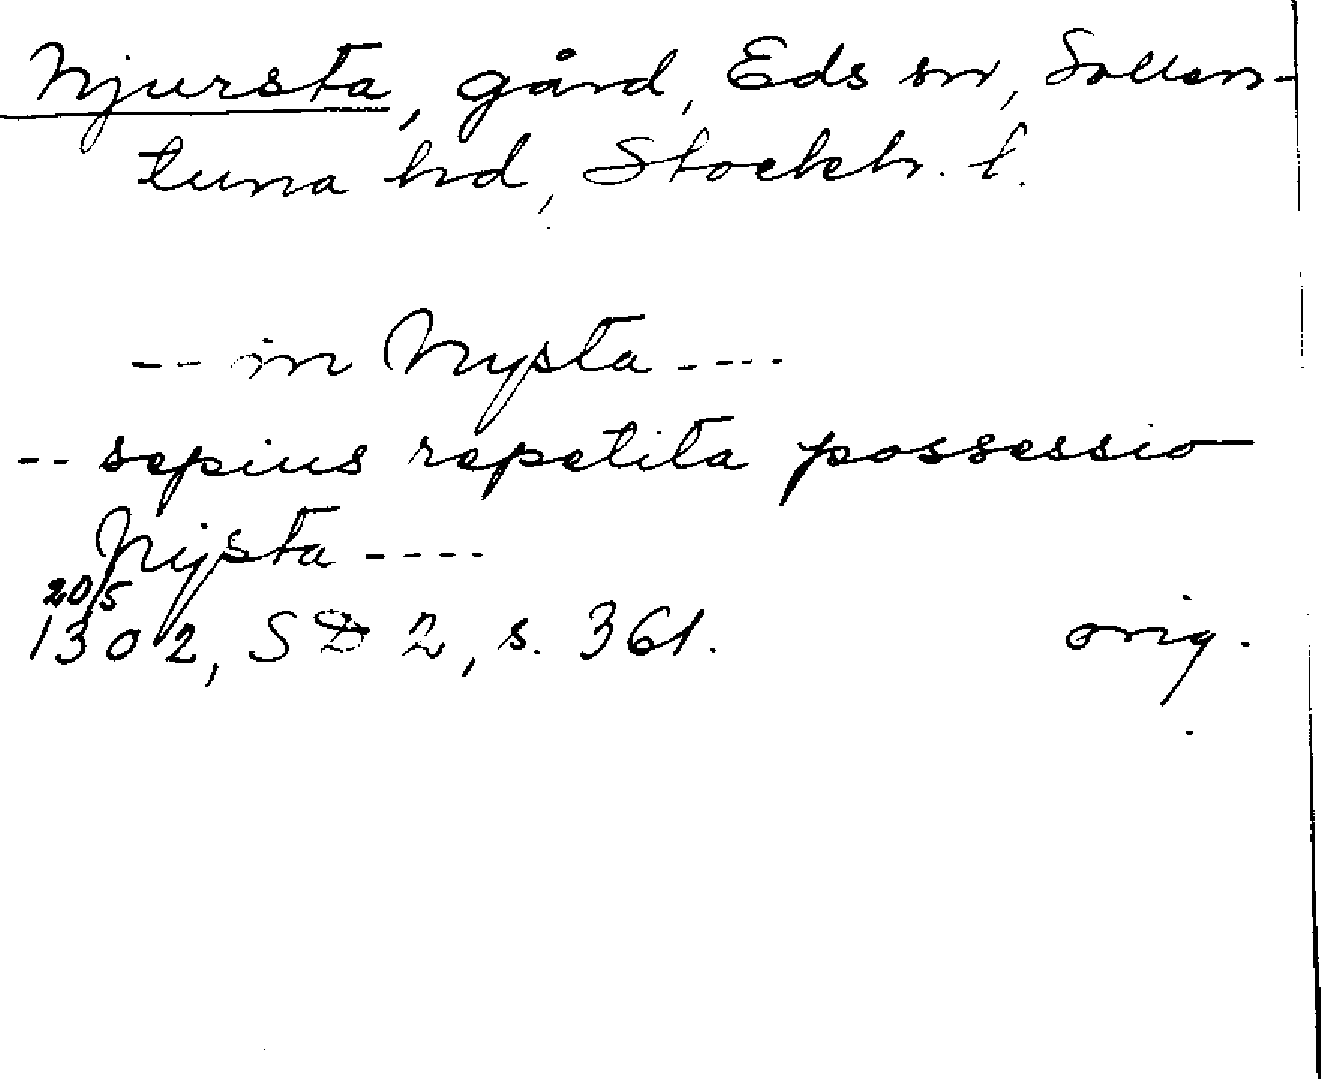 Njursta, gård, Eds sn, Sollen-
tuna hd, Stockh. l.
-- in Nysta ----
-- sepius repetita possessio
Nysta ----
20/5
1302, SD 2, s. 361. orig.